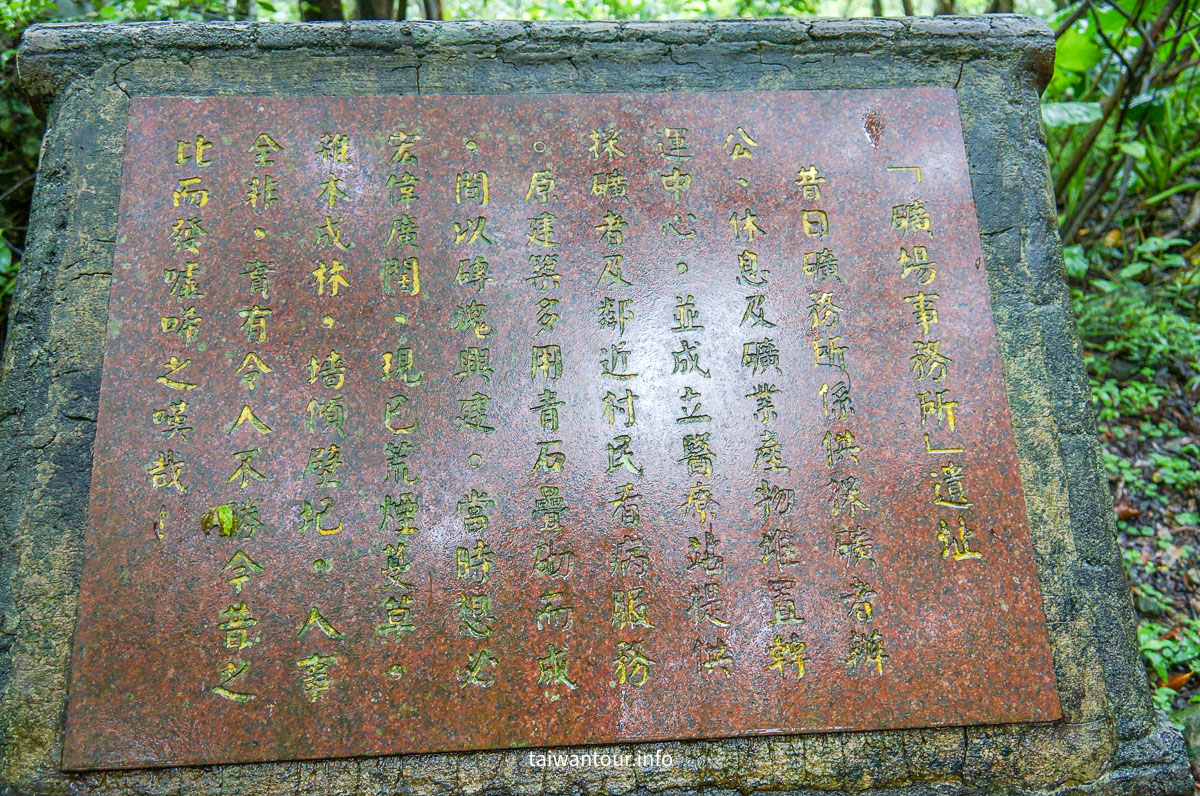 「礦場事務所」遺址
昔日礦務所係供採礦者辦
公、休息及礦業產物堆置轉
運中心。並成立醫療站提供
採礦者及鄰近村民看病服務
。原建築多用青石疊砌而成
，間以磚塊興建。當時想必
宏偉廣闊，現已荒煙蔓草。
雜木成林，墻傾壁圮。人事
全非，實有令人不勝今昔之
比而發噓唏之嘆哉！
taiwantour.info